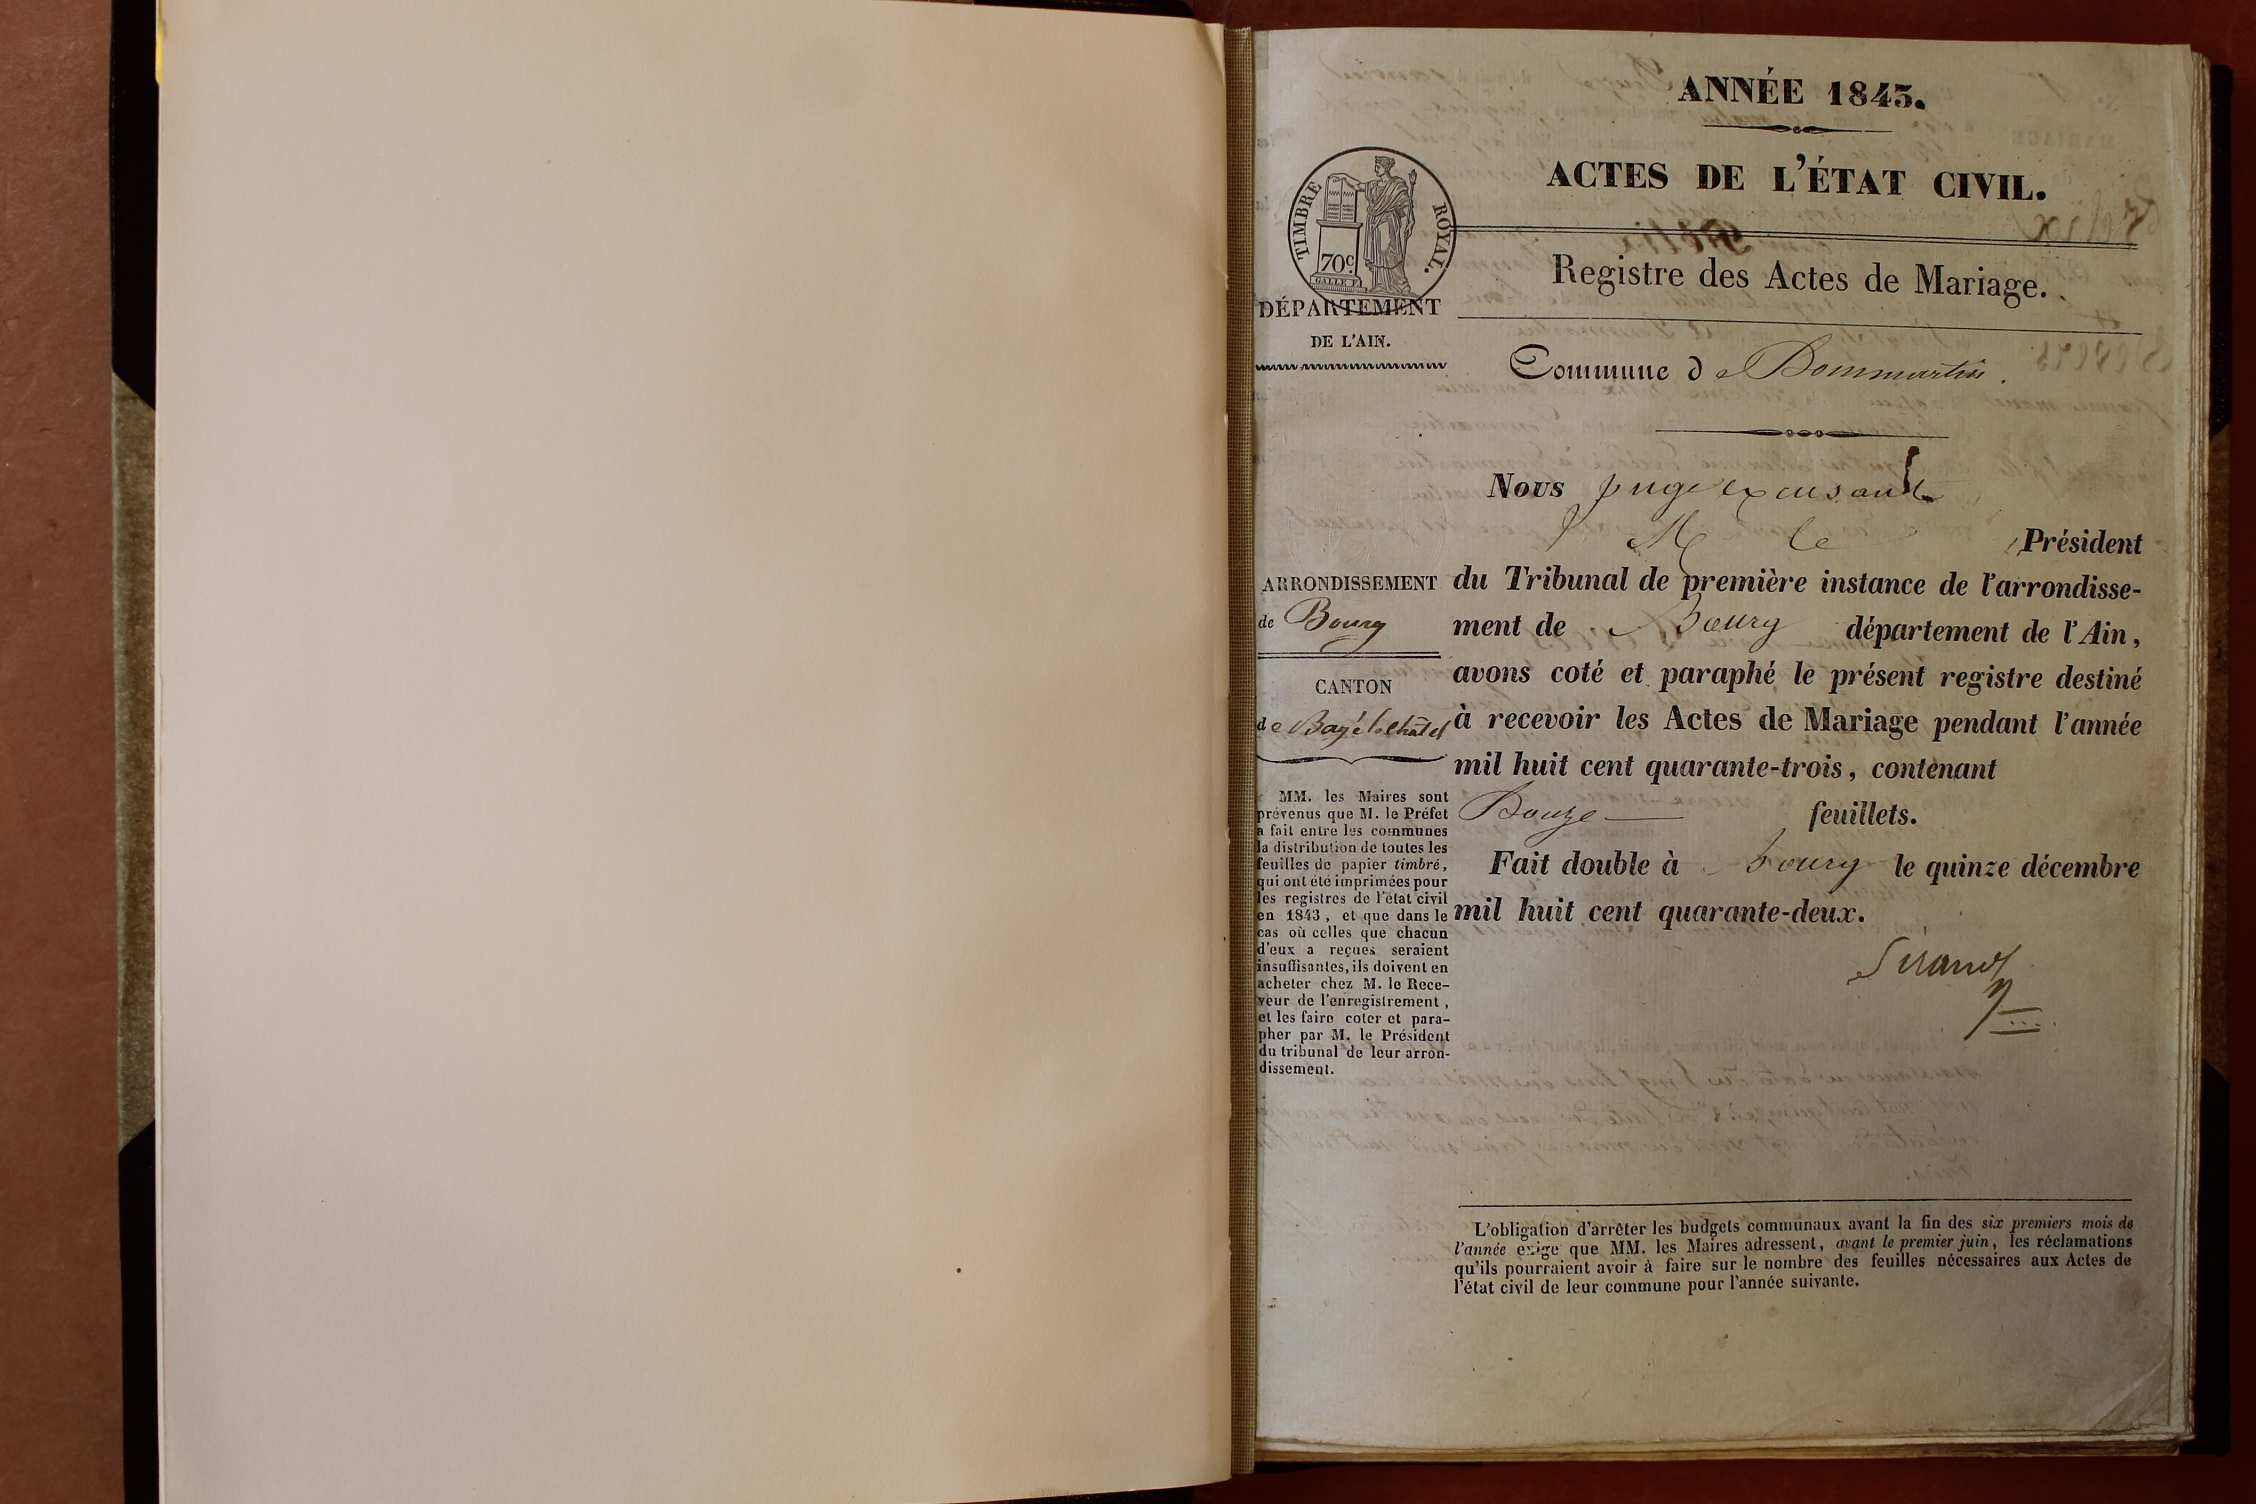 ANNÉE 1843.
ACTES DE L'ÉTAT CIVIL.
TIMBRE ROYAL.
70c.
Registre des Actes de Mariage.
DÉPARTEMENT
DE L'AIN.
Commune de Dommartin.
Nous juge excusant
M le Président
ARRONDISSEMENT
de Bourg
du Tribunal de première instance de l'arrondisse-
ment de Bourg département de l'Ain,
avons coté et paraphé le présent registre destiné
à recevoir les Actes de Mariage pendant l'année
mil huit cent quarante-trois, contenant
Douze feuillets.
Fait double à bourg le quinze décembre
mil huit cent quarante-deux.
Sirand
CANTON
de Bagé le châtel
MM. les Maires sont
prévenus que M. le Préfet
a fait entre les communes
la distribution de toutes les
feuilles de papier timbré,
qui ont été imprimées pour
les registres de l'état civil
en 1843, et que dans le
cas où celles que chacun
d'eux a reçues seraient
insuffisantes, ils doivent en
acheter chez M. le Rece-
veur de l'enregistrement,
et les faire coter et para-
pher par M. le Président
du tribunal de leur arron-
dissement.
L'obligation d'arrêter les budgets communaux avant la fin des six premiers mois de
l'année exige que MM. les Maires adressent, avant le premier juin, les réclamations
qu'ils pourraient avoir à faire sur le nombre des feuilles nécessaires aux Actes de
l'état civil de leur commune pour l'année suivante.